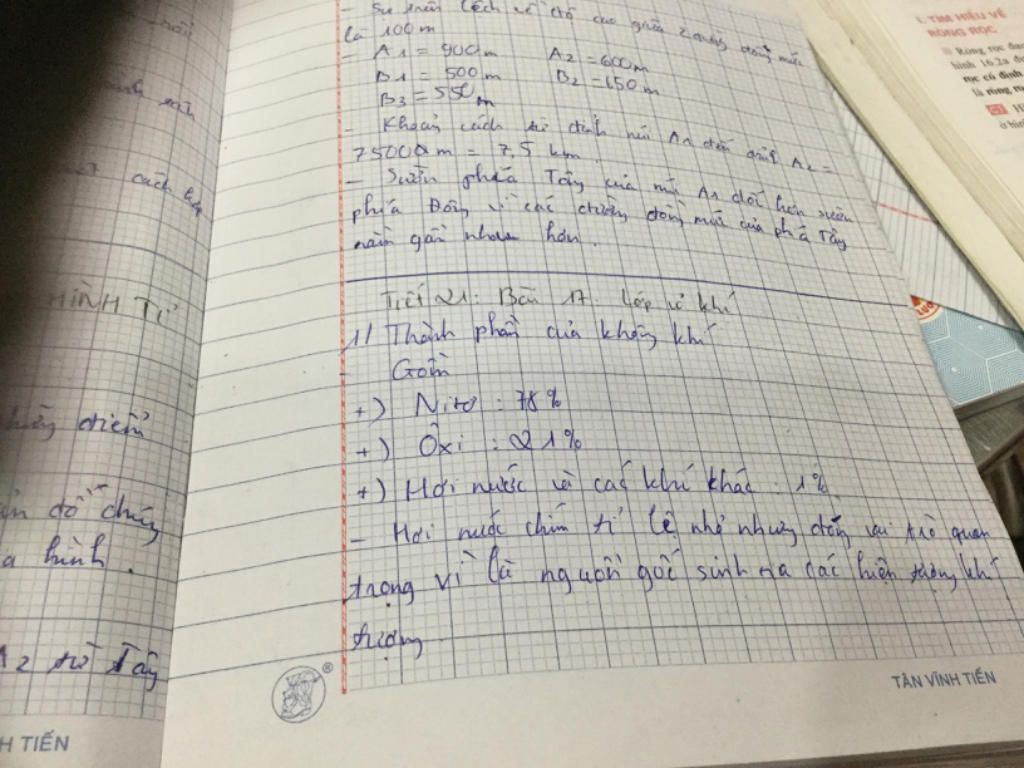 rồi
cách
HÌNH TỈ
điểm
đồ chúng
a hình.
A2 từ Tây
H TIẾN
- Sự chên lệch về độ cao giữa 2 đường đồng mức
là 100m
- A1 = 900m A2 = 600m
B1 = 500m B2 = 650m
B3 = 550m
- Khoản cách từ đỉnh núi A1 đến đỉnh A2 =
75000m = 7,5 km.
- Sườn phía Tây của núi A1 dốc hơn sườn
phía Đông vì các đường đồng mức của phía Tây
nằm gần nhau hơn.
Tiết 21: Bài 17. Lớp vỏ khí
1/ Thành phần của không khí
Gồm
+) Nitơ : 78%
+) Ôxi : 21%
+) Hơi nước và các khí khác : 1%.
- Hơi nước chím tỉ lệ nhỏ nhưng đóng vai trò quan
trọng vì là nguồn gốc sinh ra các hiện tượng khí
tượng
®
TÂN VĨNH TIẾN
I. TÌM HIỂU VỀ
RÒNG RỌC
Ròng rọc đư
hình 16.2a đư
rọc cố định
là ròng rọ
ở hìn